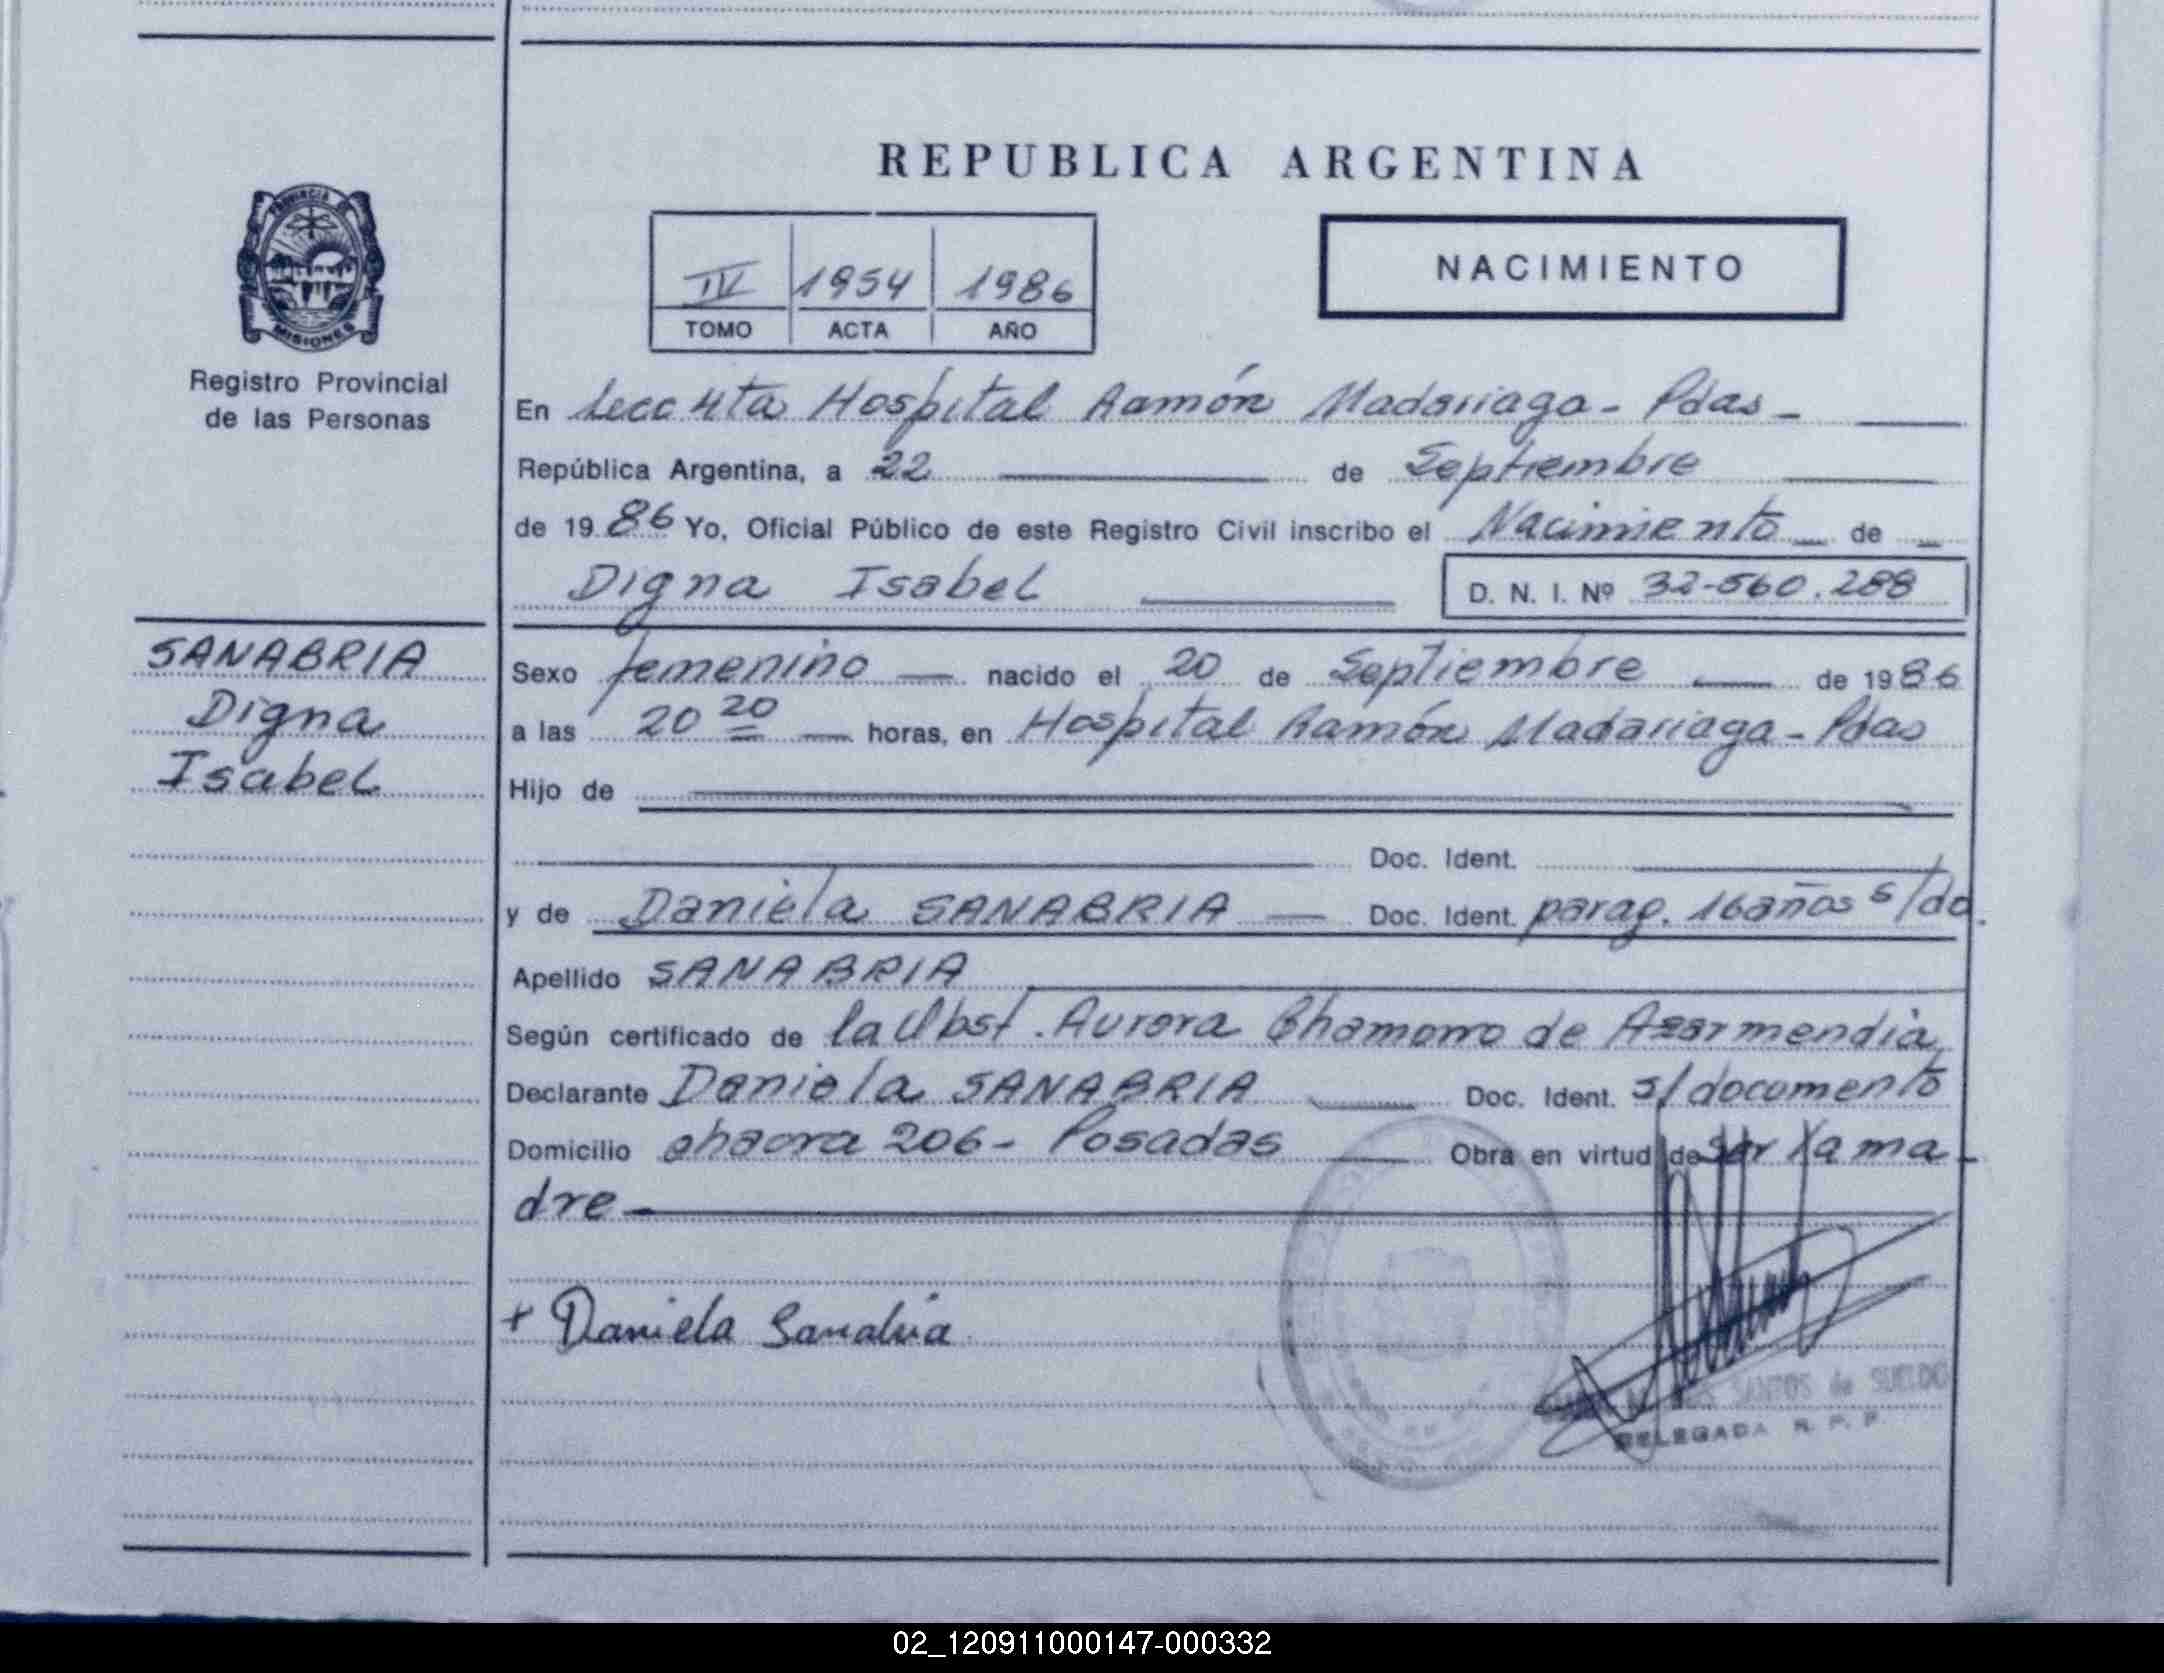 REPUBLICA ARGENTINA
PROVINCIA DE
MISIONES
Registro Provincial
de las Personas
IV 1954 1986
TOMO ACTA AÑO
NACIMIENTO
En Secc 4ta Hospital Ramón Madariaga - Pdas -
República Argentina, a 22 de Septiembre
de 1986 Yo, Oficial Público de este Registro Civil inscribo el Nacimiento de
Digna Isabel D. N. I. Nº 32-560.288
SANABRIA
Digna
Isabel
Sexo femenino nacido el 20 de Septiembre de 1986
a las 20 20 horas, en Hospital Ramón Madariaga - Pdas
Hijo de
Doc. Ident.
y de Daniela SANABRIA Doc. Ident. parag. 16 años s/do.
Apellido SANABRIA
Según certificado de la Obst. Aurora Chamorro de Azarmendia
Declarante Daniela SANABRIA Doc. Ident. s/documento
Domicilio chacra 206 - Posadas Obra en virtud de ser la ma
dre
+ Daniela Sanabria
SANTOS de SUELDO
DELEGADA R. P. P.
02_120911000147-000332